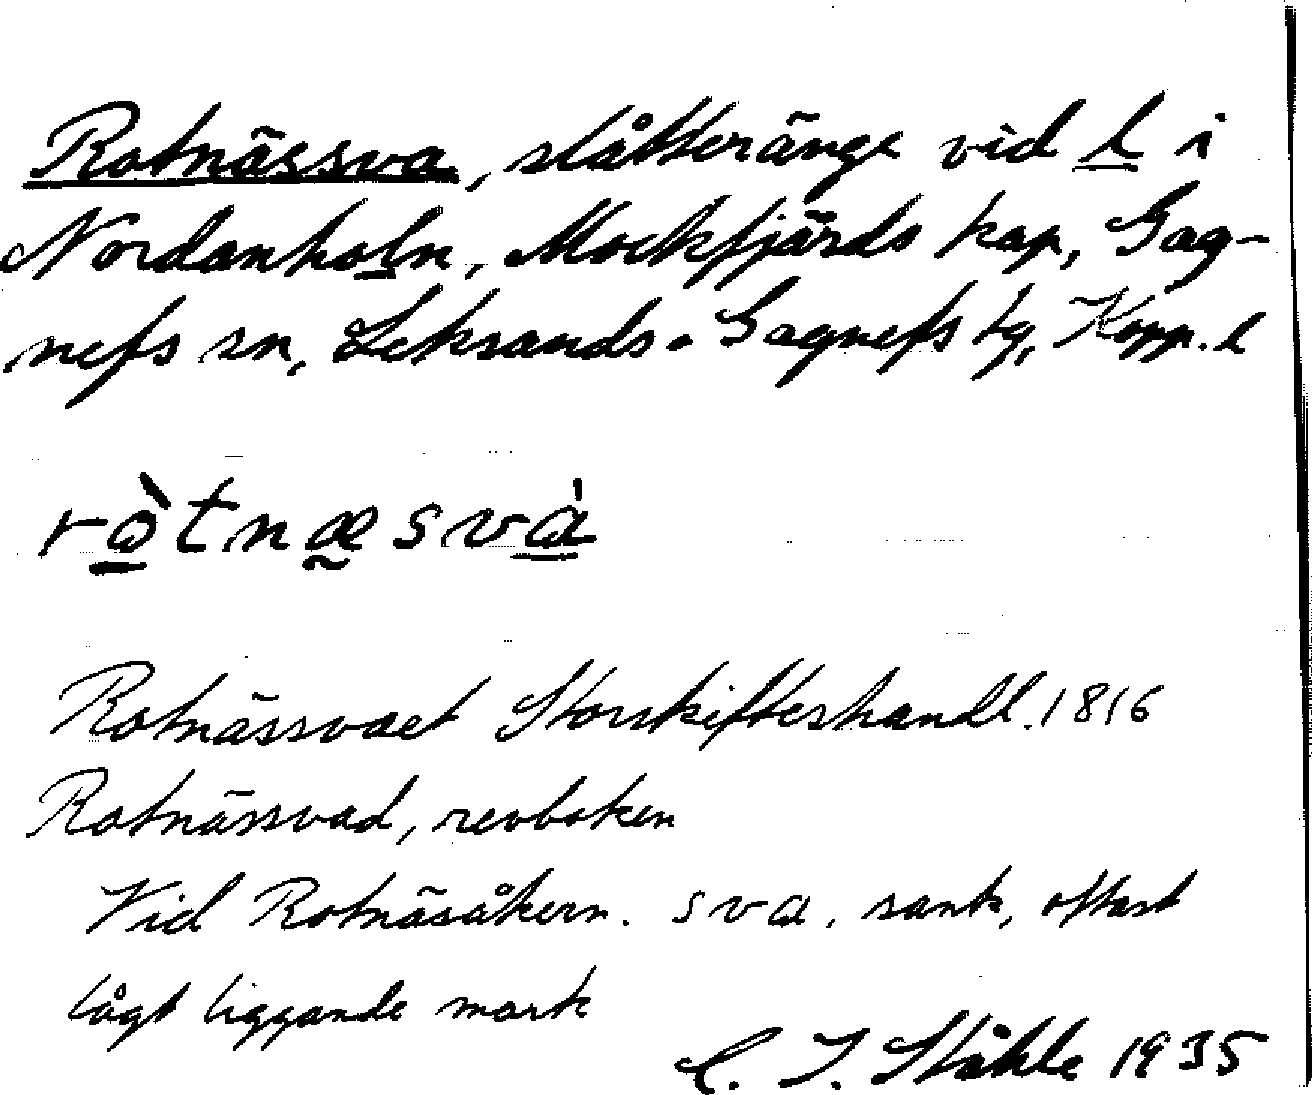 Rotnässva, slåtteränge vid l i
Nordanholn, Mockfjärds kap, Gag-
nefs sn, Leksands- Gagnefs tg, Kopp. l
ròtnæsvà
Rotnässvaet Storskifteshandl. 1816
Rotnässvad, revboken
Vid Rotnäsåkern. sva, sank, oftast
lågt liggande mark
C. I. Ståhle 1935